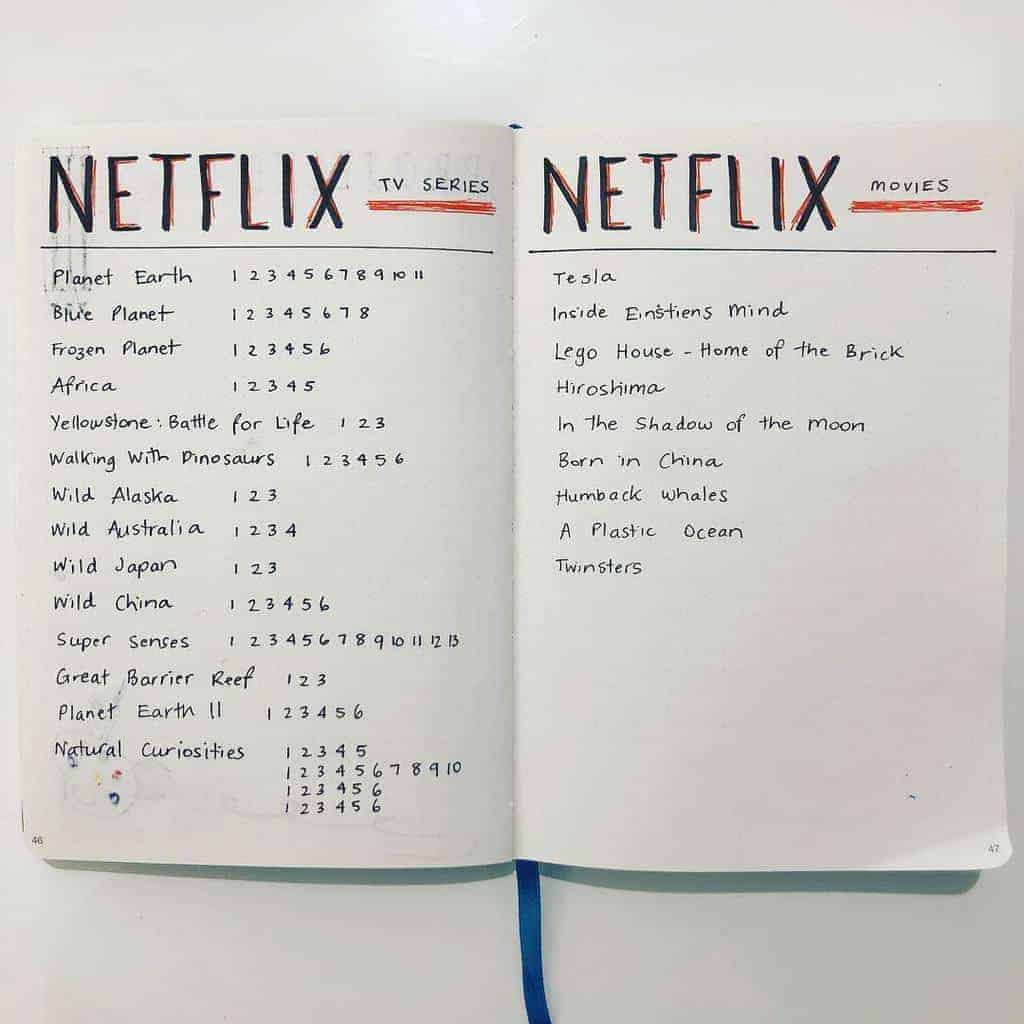 NETFLIX TV SERIES
Planet Earth 1 2 3 4 5 6 7 8 9 10 11
Blue Planet 1 2 3 4 5 6 7 8
Frozen Planet 1 2 3 4 5 6
Africa 1 2 3 4 5
Yellowstone: Battle for Life 1 2 3
Walking With Dinosaurs 1 2 3 4 5 6
Wild Alaska 1 2 3
Wild Australia 1 2 3 4
Wild Japan 1 2 3
Wild China 1 2 3 4 5 6
Super Senses 1 2 3 4 5 6 7 8 9 10 11 12 13
Great Barrier Reef 1 2 3
Planet Earth II 1 2 3 4 5 6
Natural Curiosities 1 2 3 4 5
1 2 3 4 5 6 7 8 9 10
1 2 3 4 5 6
1 2 3 4 5 6
46
NETFLIX MOVIES
Tesla
Inside Einstiens Mind
Lego House - Home of the Brick
Hiroshima
In the Shadow of the Moon
Born in China
Humback Whales
A Plastic Ocean
Twinsters
47